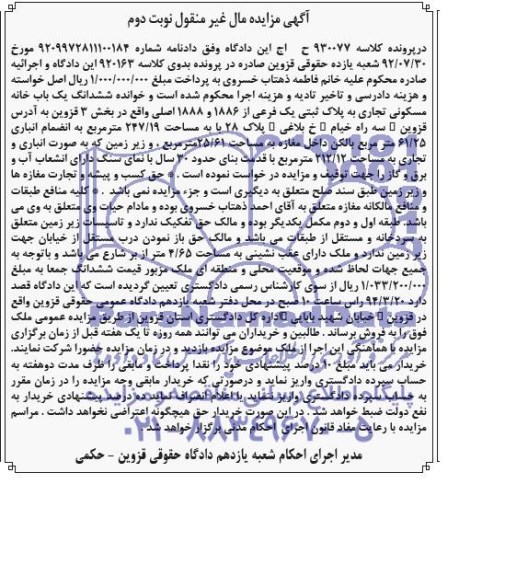 آگهی مزایده مال غیر منقول نوبت دوم
درپرونده کلاسه ۹۳۰۰۷۷ ح اج این دادگاه وفق دادنامه شماره ۹۲۰۹۹۷۲۸۱۱۱۰۰۱۸۴ مورخ
۹۲/۰۷/۳۰ شعبه یازده حقوقی قزوین صادره در پرونده بدوی کلاسه ۹۲۰۱۶۳ این دادگاه و اجرائیه
صادره محکوم علیه خانم فاطمه ذهتاب خسروی به پرداخت مبلغ ۱/۰۰۰/۰۰۰/۰۰۰ ریال اصل خواسته
و هزینه دادرسی و تاخیر تادیه و هزینه اجرا محکوم شده است و خوانده ششدانگ یک باب خانه
مسکونی تجاری به پلاک ثبتی یک فرعی از ۱۸۸۶ و ۱۸۸۸ اصلی واقع در بخش ۳ قزوین به آدرس
قزوین سه راه خیام خ بلاغی پلاک ۲۸ با به مساحت ۲۴۷/۱۹ مترمربع به انضمام انباری
۶۱/۲۵ متر مربع بالکن داخل مغازه به مساحت ۲۵/۶۱مترمربع . و زیر زمین که به صورت انباری و
تجاری به مساحت ۲۱۲/۱۲ مترمربع با قدمت بنای حدود ۳۰ سال با نمای سنگ دارای انشعاب آب و
برق و گاز را جهت توقیف و مزایده در خواست نموده است . * حق کسب و پیشه و تجارت مغازه ها
و زیر زمین طبق سند صلح متعلق به دیگری است و جزء مزایده نمی باشد . * کلیه منافع طبقات
و منافع مالکانه مغازه متعلق به آقای احمد ذهتاب خسروی بوده و مادام حیات وی متعلق به وی می
باشد. طبقه اول و دوم مکمل یکدیگر بوده و مالک حق تفکیک ندارد و تاسیسات زیر زمین متعلق
به سردخانه و مستقل از طبقات می باشد و مالک حق باز نمودن درب مستقل از خیابان جهت
زیر زمین ندارد و ملک دارای عقب نشینی به مساحت ۴/۶۵ متر از بر شارع می باشد و باتوجه به
جمیع جهات لحاظ شده و موقعیت محلی و منطقه ای ملک مزبور قیمت ششدانگ جمعا به مبلغ
۱/۰۳۳/۲۰۰/۰۰۰ ریال از سوی کارشناس رسمی دادگستری تعیین گردیده است که این دادگاه قصد
دارد ۹۴/۳/۲۰ راس ساعت ۱۰ صبح در محل دفتر شعبه یازدهم دادگاه عمومی حقوقی قزوین واقع
در قزوین خیابان شهید بابایی اداره کل دادگستری استان قزوین از طریق مزایده عمومی ملک
فوق را به فروش برساند . طالبین و خریداران می توانند همه روزه تا یک هفته قبل از زمان برگزاری
مزایده با هماهنگی این اجرا از ملک موضوع مزایده بازدید و در زمان مزایده حضورا شرکت نمایند.
خریدار می باید مبلغ ۱۰ درصد پیشنهادی خود را نقدا پرداخت و مابقی را ظرف مدت دوهفته به
حساب سپرده دادگستری واریز نماید و درصورتی که خریدار مابقی وجه مزایده را در زمان مقرر
به حساب سپرده دادگستری واریز ننماید یا اعلام انصراف نماید ده درصد پیشنهادی خریدار به
نفع دولت ضبط خواهد شد . در این صورت خریدار حق هیچگونه اعتراضی نخواهد داشت . مراسم
مزایده با رعایت مفاد قانون اجرای احکام مدنی برگزار خواهد شد
مدیر اجرای احکام شعبه یازدهم دادگاه حقوقی قزوین - حکمی
۰۲۱-۸۸۳۴۹۶۷۰-۵